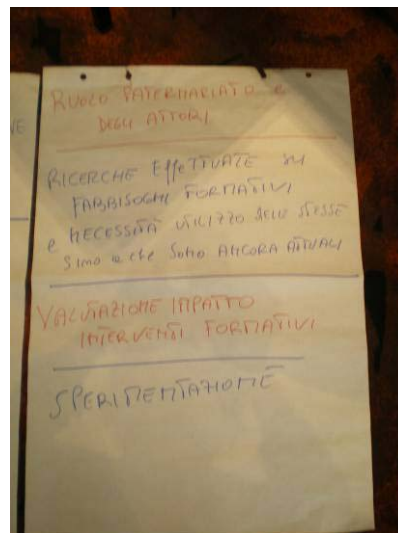 VE
RUOLO PATERNARIATO e
DEGLI ATTORI
RICERCHE EFFETTUATE SU
FABBISOGNI FORMATIVI
e NECESSITÀ UTILIZZO DELLE STESSE
SINO a che SONO ANCORA ATTUALI
VALUTAZIONE IMPATTO
INTERVENTI FORMATIVI
SPERIMENTAZIONE